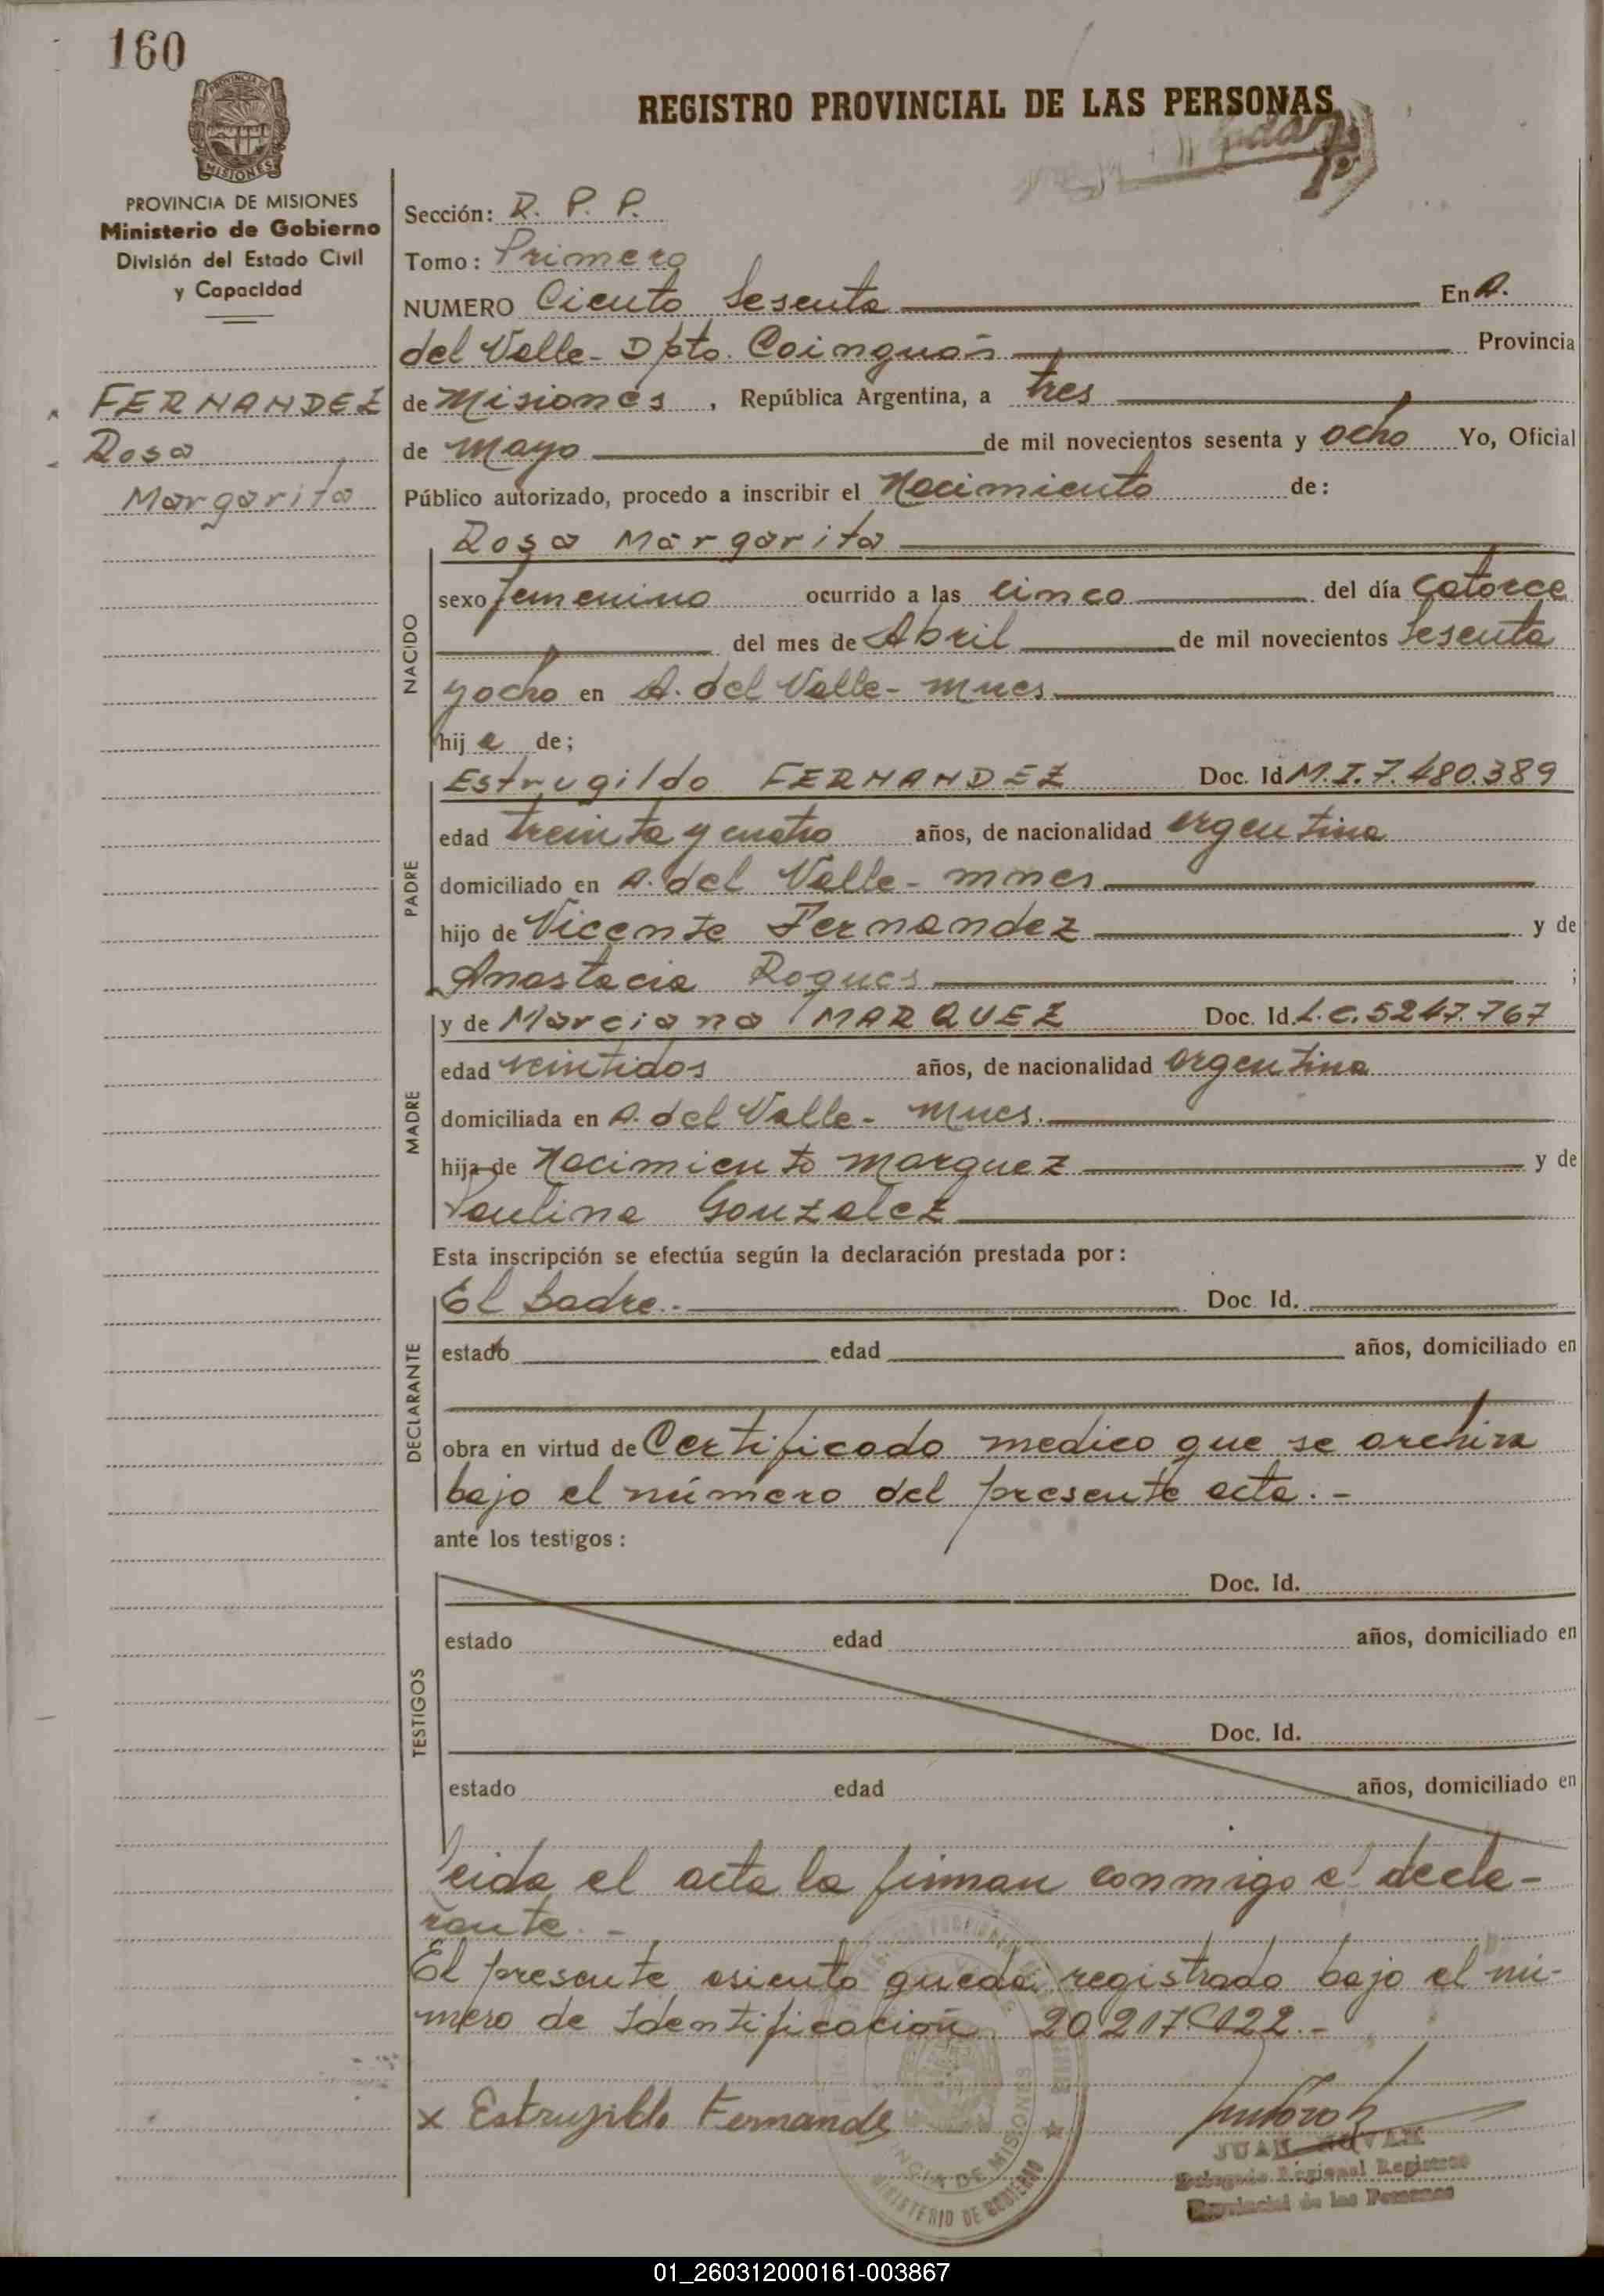 160
PROVINCIA DE
MISIONES
REGISTRO PROVINCIAL DE LAS PERSONAS
PROVINCIA DE MISIONES
Ministerio de Gobierno
División del Estado Civil
y Capacidad
FERNANDEZ
Rosa
Margarita
Sección: R. P. P.
Tomo: Primero
NUMERO Ciento Sesenta En A.
del Valle - Dpto. Cainguás Provincia
de Misiones, República Argentina, a tres
de Mayo de mil novecientos sesenta y ocho Yo, Oficial
Público autorizado, procedo a inscribir el Nacimiento de:
Rosa Margarita
NACIDO
sexo femenino ocurrido a las cinco del día catorce
del mes de Abril de mil novecientos sesenta
y ocho en A. del Valle - Mnes
hija de;
PADRE
Estrugildo FERNANDEZ Doc. Id M.I. 7.480.389
edad treinta y cuatro años, de nacionalidad argentina
domiciliado en A. del Valle - mnes
hijo de Vicente Fernandez y de
Anastacia Roques ;
MADRE
y de Marciana MARQUEZ Doc. Id. L.C. 5247.767
edad veintidos años, de nacionalidad argentina
domiciliada en A. del Valle - Mnes.
hija de Nacimiento Marquez y de
Paulina Gonzalez
Esta inscripción se efectúa según la declaración prestada por:
DECLARANTE
El padre.- Doc. Id.
estado edad años, domiciliado en
obra en virtud de Certificado medico que se archiva
bajo el número del presente acta. -
ante los testigos:
TESTIGOS
Doc. Id.
estado edad años, domiciliado en
Doc. Id.
estado edad años, domiciliado en
Leida el acta la firman conmigo el decla-
rante. -
El presente asiento queda registrado bajo el nú-
mero de Identificación 20217122.-
x Estrugildo Fernandez
PROVINCIA DE MISIONES
MINISTERIO DE GOBIERNO
JUAN
Delegado Regional Registro
Provincial de las Personas
01_260312000161-003867